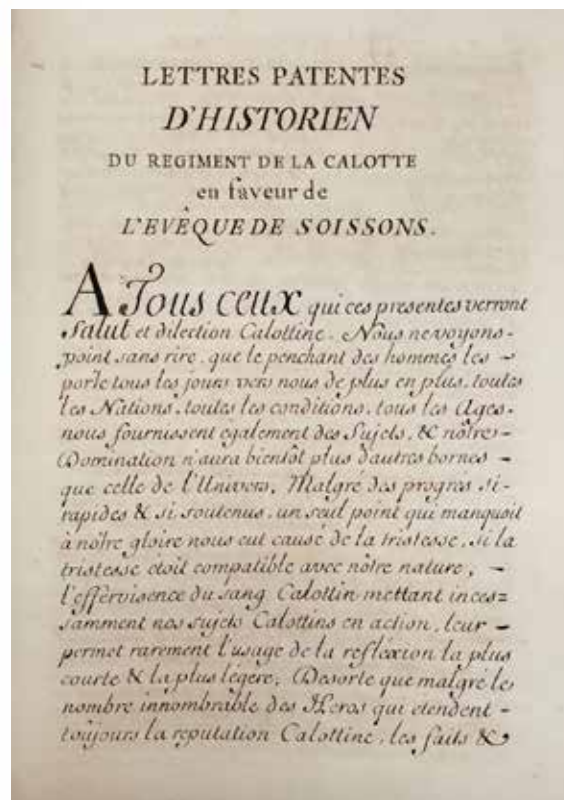 LETTRES PATENTES
D'HISTORIEN
DU REGIMENT DE LA CALOTTE
en faveur de
L'EVÊQUE DE SOISSONS.
A Tous ceux qui ces presentes verront
Salut et dilection Calottine. Nous ne voyons-
point sans rire, que le penchant des hommes les -
porte tous les jours vers nous de plus en plus, toutes
les Nations, toutes les conditions, tous les Ages-
nous fournissent egalement des Sujets, & nôtre-
Domination n'aura bientôt plus d'autres bornes -
que celle de l'Univers, Malgré des progres si-
rapides & si soutenus, un seul point qui manquoit
à nôtre gloire nous eut causé de la tristesse, si la
tristesse étoit compatible avec nôtre nature, -
l'effervisence du sang Calottin mettant inces=
samment nos sujets Calottins en action, leur -
permet rarement l'usage de la refléxion la plus
courte & la plus légere, Desorte que malgré le
nombre innombrable des Heros qui etendent -
toûjours la reputation Calottine, les faits &